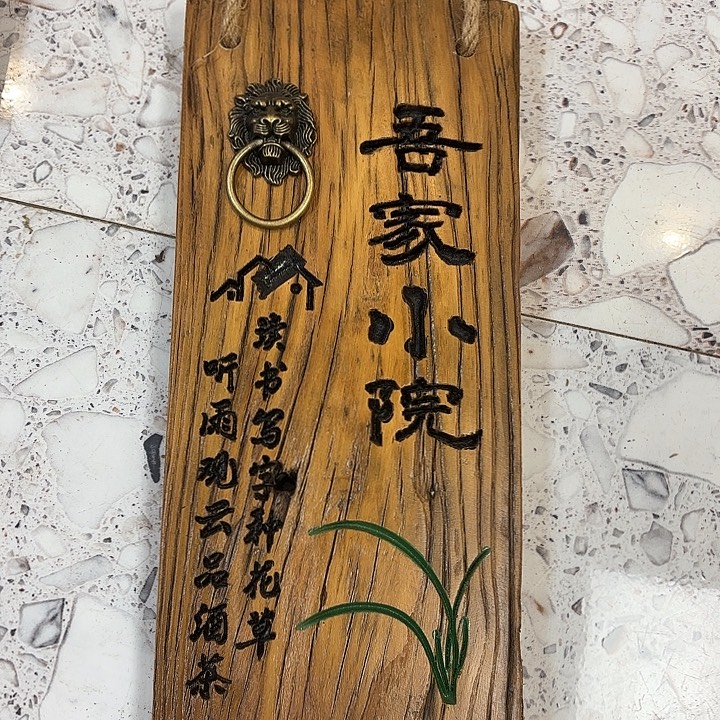 吾家小院
读书写字种花草
听雨观云品酒茶